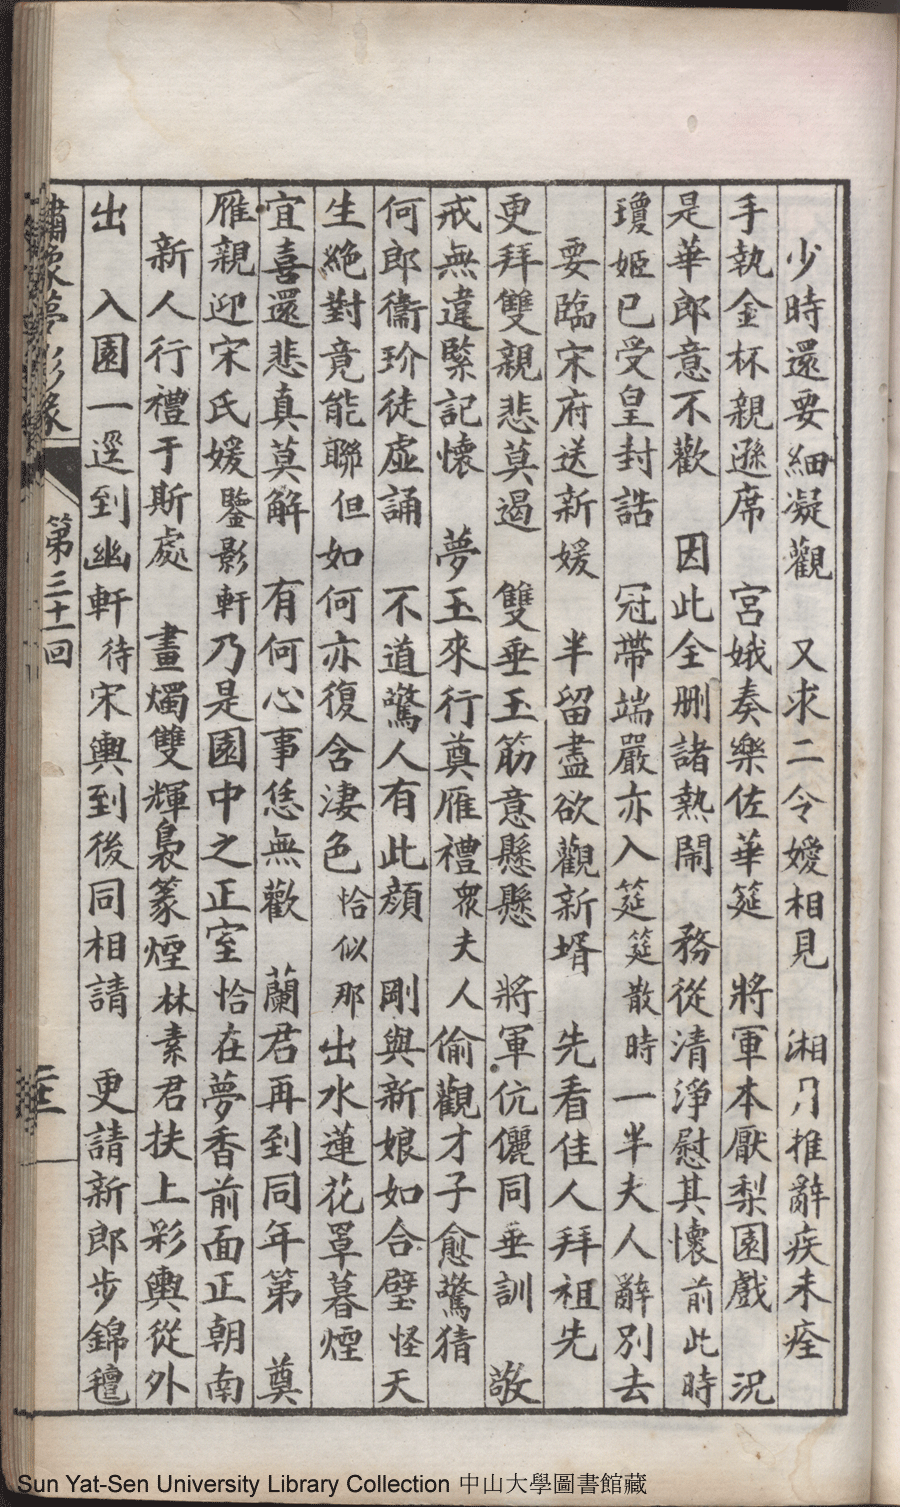 少時還要細凝觀　又求二令嬡相見　湘乃推辭疾未痊
手執金杯親遜席　宮娥奏樂佐華筵　將軍本厭梨園戲　況
是華郎意不歡　因此全刪諸熱鬧　務從清淨慰其懷前此時
瓊姬已受皇封誥　冠帶端嚴亦入筵筵散時一半夫人辭別去
要臨宋府送新嬡　半留盡欲觀新壻　先看佳人拜祖先
更拜雙親悲莫遏　雙垂玉筯意懸懸　將軍伉儷同垂訓　敬
戒無違緊記懷　夢玉來行奠雁禮衆夫人偷觀才子愈驚猜
何郎衞玠徒虛誦　不道驚人有此顏　剛與新娘如合璧怪天
生絶對竟能聯但如何亦復含淒色恰似那出水蓮花罩暮煙
宜喜還悲真莫解　有何心事恁無歡　蘭君再到同年第　奠
雁親迎宋氏媛鑒影軒乃是園中之正室恰在夢香前面正朝南
新人行禮于斯處　畫燭雙輝裊篆煙林素君扶上彩輿從外
出　入園一逕到幽軒待宋輿到後同相請　更請新郎步錦氊
繡像夢影緣　第三十一回
Sun Yat-Sen University Library Collection 中山大學圖書館藏